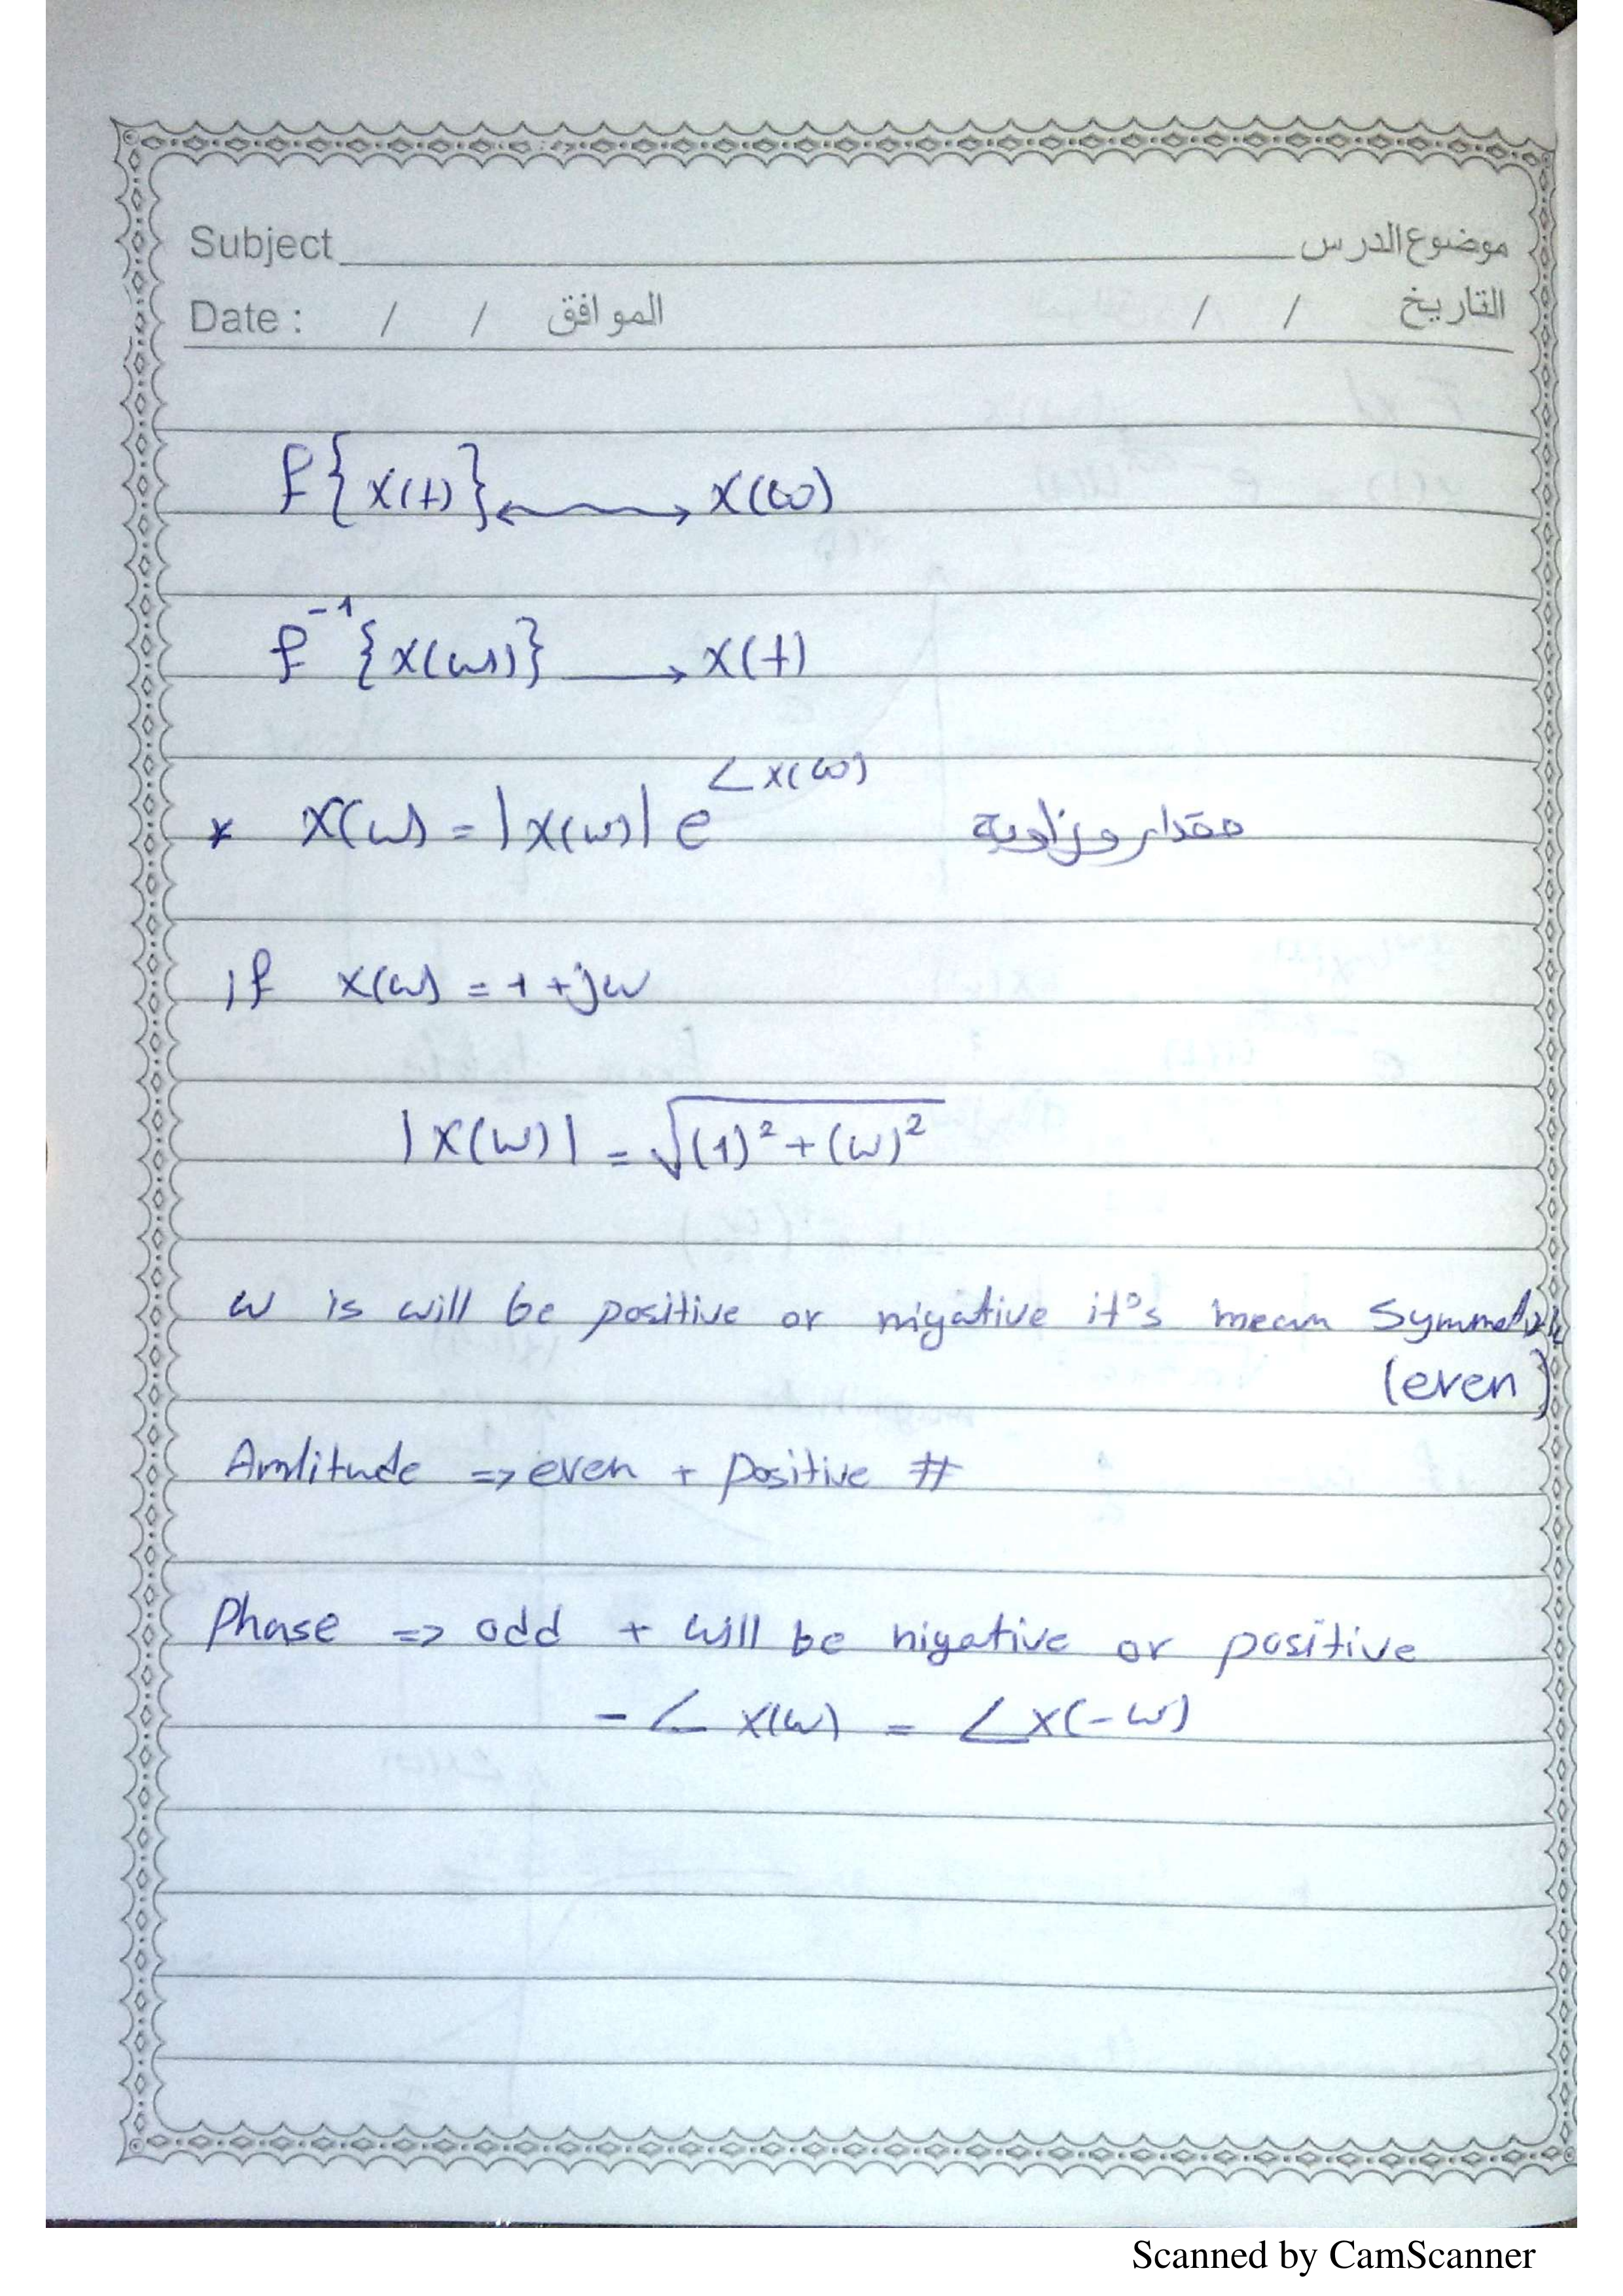 Subject موضوع الدرس
Date : / / الموافق / / التاريخ
f{x(t)} ↔ X(ω)
f⁻¹{x(ω)} → x(t)
* X(ω) = |x(ω)| e^∠x(ω) مقدار وزاوية
if x(ω) = 1 + jω
|X(ω)| = √(1)² + (ω)²
ω is will be positive or nigative it's mean Symmetric
(even)
Amlitude => even + positive #
Phase => odd + will be nigative or positive
- ∠ x(ω) = ∠x(-ω)
Scanned by CamScanner